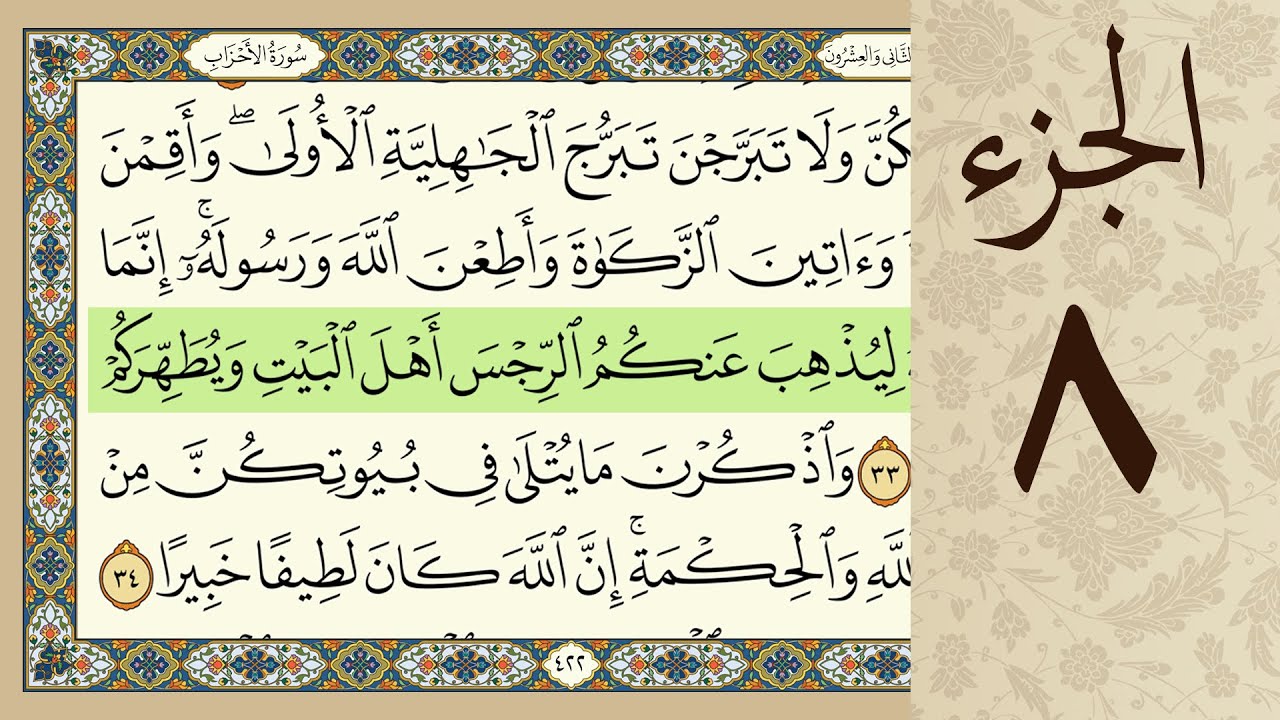 سُورَةُ الأَحْزَابِ
الثَّانِي وَالعِشْرُونَ
كُنَّ وَلَا تَبَرَّجْنَ تَبَرُّجَ ٱلْجَٰهِلِيَّةِ ٱلْأُولَىٰۖ وَأَقِمْنَ
وَءَاتِينَ ٱلزَّكَوٰةَ وَأَطِعْنَ ٱللَّهَ وَرَسُولَهُۥٓۚ إِنَّمَا
لِيُذْهِبَ عَنكُمُ ٱلرِّجْسَ أَهْلَ ٱلْبَيْتِ وَيُطَهِّرَكُمْ
٣٣ وَٱذْكُرْنَ مَا يُتْلَىٰ فِي بُيُوتِكُنَّ مِنْ
ٱللَّهِ وَٱلْحِكْمَةِۚ إِنَّ ٱللَّهَ كَانَ لَطِيفًا خَبِيرًا ٣٤
٤٢٢
الجزء
٨